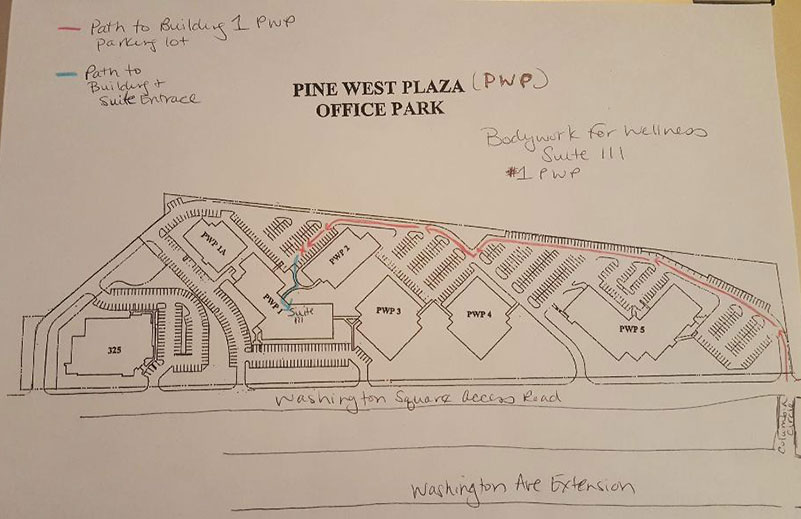 Path to Building 1 PWP
parking lot
Path to
Building +
Suite Entrace
PINE WEST PLAZA (PWP)
OFFICE PARK
Bodywork for Wellness
Suite 111
#1 PWP
PWP 1A
PWP 2
PWP 1
Suite
111
PWP 3
PWP 4
PWP 5
325
Washington Square Access Road
Columbia
Circle
Washington Ave Extension